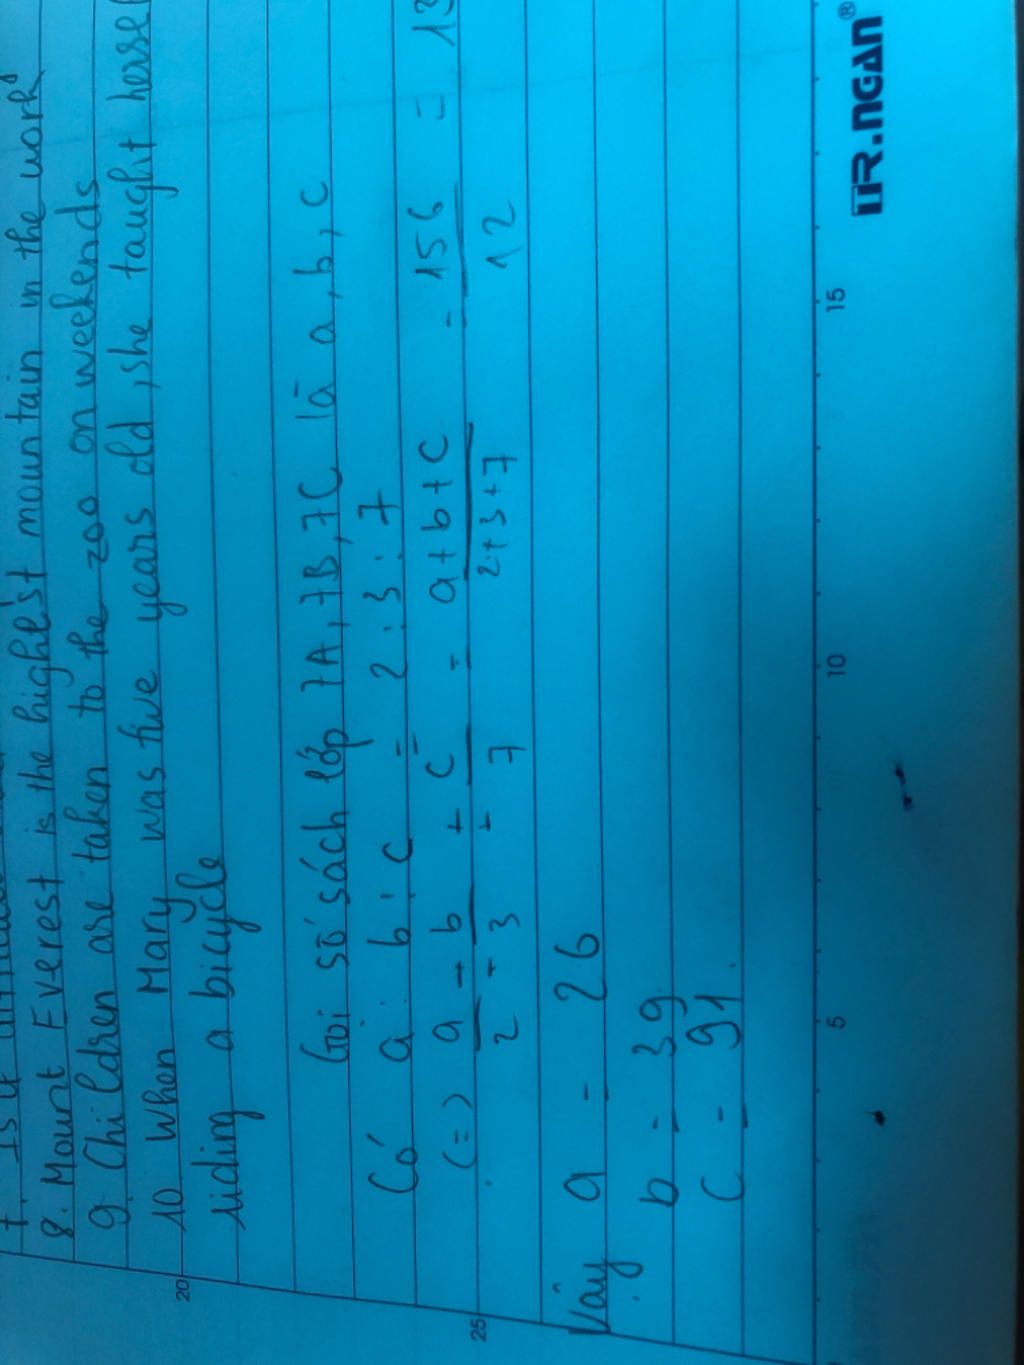 8. Mount Everest is the highest mountain in the work
9. Children are taken to the zoo on weekends
10 When Mary was five years old, she taught herself
riding a bicycle
20
Gọi số sách lớp 7A, 7B, 7C là a, b, c
Có a : b : c = 2 : 3 : 7
(=) a/2 = b/3 = c/7 = a+b+c/2+3+7 = 156/12 = 13
25
Vậy a = 26
b = 39
c = 91.
5 10 15
TR.NGAN®